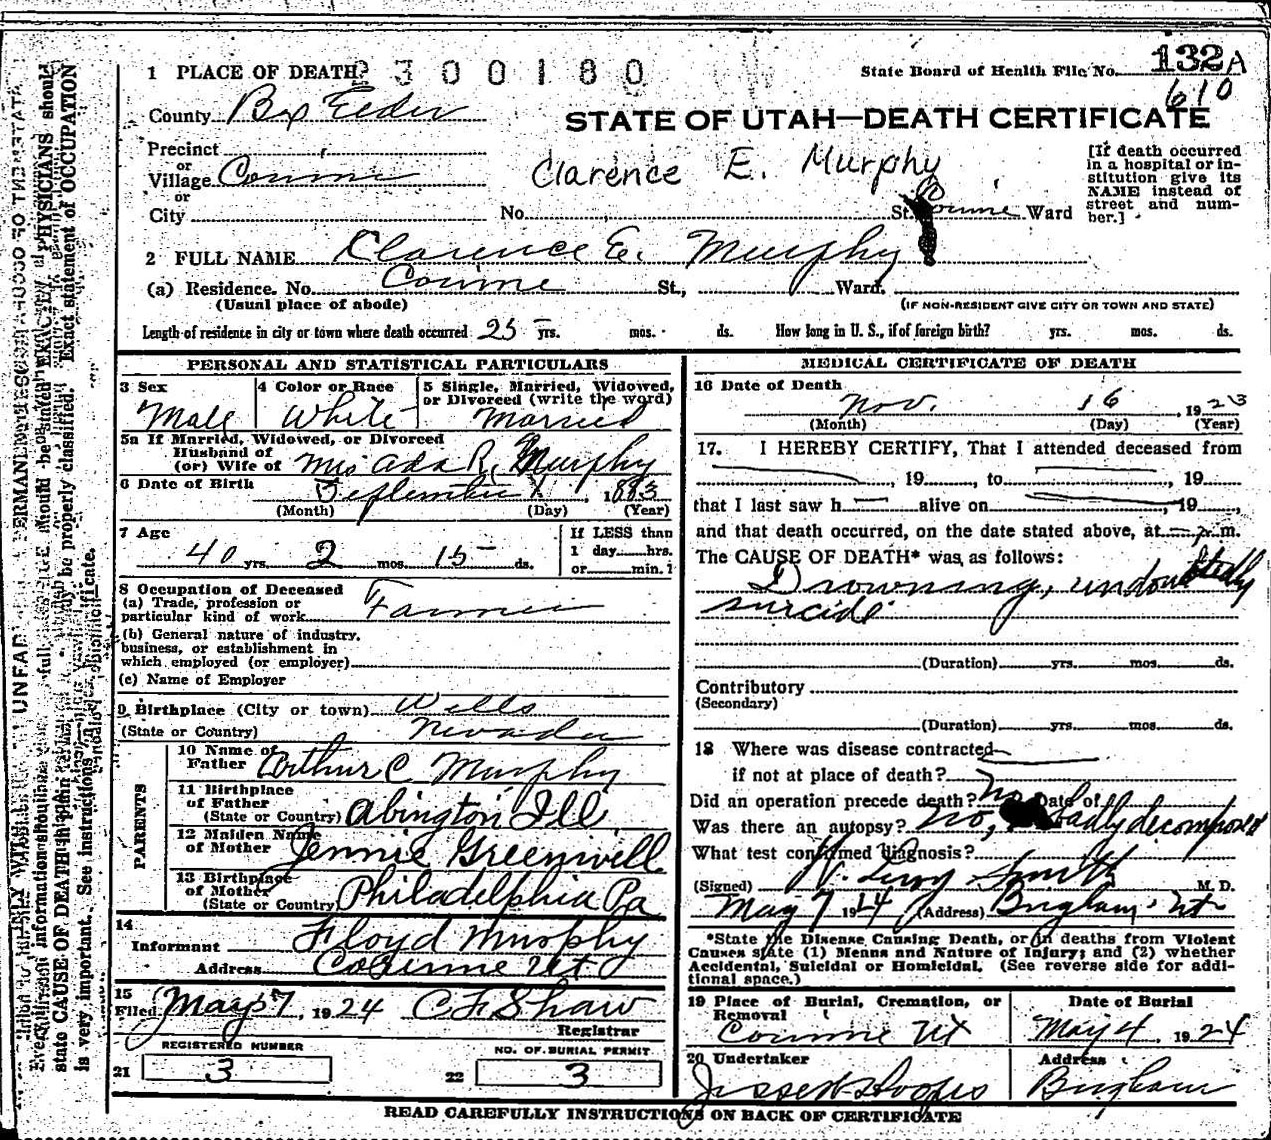 1 PLACE OF DEATH 2300180
State Board of Health File No. 132A
610
County Box Elder
STATE OF UTAH—DEATH CERTIFICATE
Precinct
or
Village Corinne
or
City No. St. Corinne Ward
Clarence E. Murphy
[If death occurred
in a hospital or in-
stitution give its
NAME instead of
street and num-
ber.]
2 FULL NAME Clarence E. Murphy
(a) Residence. No. Corinne St., Ward.
(Usual place of abode) (IF NON-RESIDENT GIVE CITY OR TOWN AND STATE)
Length of residence in city or town where death occurred 25 yrs. mos. ds. How long in U. S., if of foreign birth? yrs. mos. ds.
PERSONAL AND STATISTICAL PARTICULARS
3 Sex
Male
4 Color or Race
White
5 Single, Married, Widowed,
or Divorced (write the word)
Married
5a If Married, Widowed, or Divorced
Husband of
(or) Wife of Mrs Ada R. Murphy
6 Date of Birth September 1, 1883
(Month) (Day) (Year)
7 Age
40 yrs. 2 mos. 15 ds.
If LESS than
1 day hrs.
or min.
8 Occupation of Deceased
(a) Trade, profession or
particular kind of work Farmer
(b) General nature of industry,
business, or establishment in
which employed (or employer)
(c) Name of Employer
9 Birthplace (City or town) Wells
(State or Country) Nevada
PARENTS
10 Name of
Father Arthur C Murphy
11 Birthplace
of Father
(State or Country) Abington Ill
12 Maiden Name
of Mother Jennie Greenwell
13 Birthplace
of Mother
(State or Country) Philadelphia Pa
14
Informant Floyd Murphy
Address Corinne Ut
15
Filed May 7, 1924 C F Shaw
Registrar
REGISTERED NUMBER
21 3
NO. OF BURIAL PERMIT
22 3
MEDICAL CERTIFICATE OF DEATH
16 Date of Death
Nov. 16, 1923
(Month) (Day) (Year)
17. I HEREBY CERTIFY, That I attended deceased from
, 19 , to , 19
that I last saw h alive on , 19 ,
and that death occurred, on the date stated above, at m.
The CAUSE OF DEATH* was as follows:
Drowning, undoubtedly
suicide
(Duration) yrs. mos. ds.
Contributory
(Secondary)
(Duration) yrs. mos. ds.
18 Where was disease contracted
if not at place of death?
Did an operation precede death? No Date of
Was there an autopsy? No, badly decomposed
What test confirmed diagnosis?
(Signed) Smith M. D.
May 7 1924 (Address) Brigham Ut
*State the Disease Causing Death, or in deaths from Violent
Causes state (1) Means and Nature of Injury; and (2) whether
Accidental, Suicidal or Homicidal. (See reverse side for addi-
tional space.)
19 Place of Burial, Cremation, or
Removal
Corinne Ut
Date of Burial
May 4 1924
20 Undertaker
Address
Brigham
READ CAREFULLY INSTRUCTIONS ON BACK OF CERTIFICATE